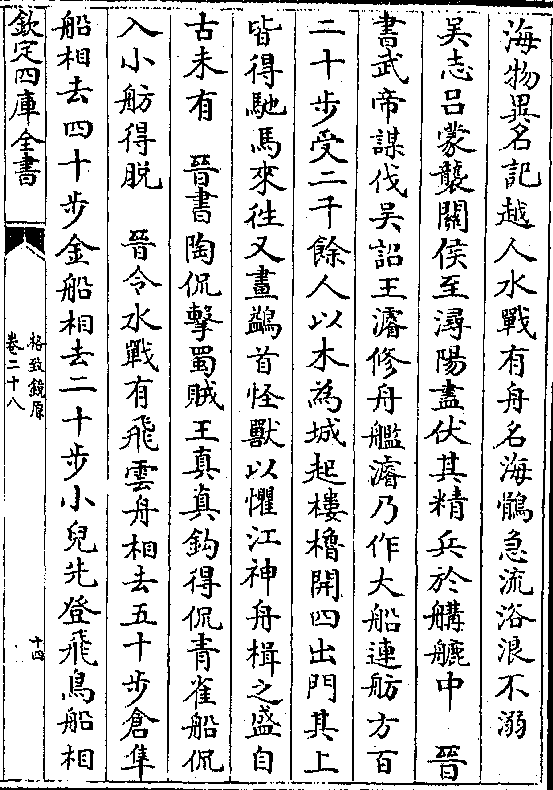 海物異名記越人水戰有舟名海鶻急流浴浪不溺
吳志呂蒙襲關侯至潯陽盡伏其精兵於䑽䑲中　晉
書武帝謀伐吳詔王濬修舟艦濬乃作大船連舫方百
二十步受二千餘人以木為城起樓櫓開四出門其上
皆得馳馬來往又畫鷁首怪獸以懼江神舟楫之盛自
古未有　晉書陶侃擊蜀賊王真真鈎得侃青雀船侃
入小舫得脱　晉令水戰有飛雲舟相去五十步倉隼
船相去四十步金船相去二十步小兒先登飛鳥船相
欽定四庫全書
格致鏡原
卷二十八
十四